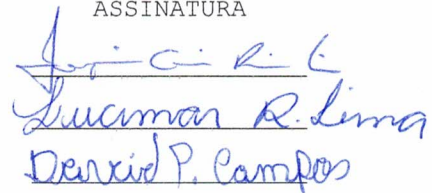 ASSINATURA
Lucimar R. Lima
David P. Campos